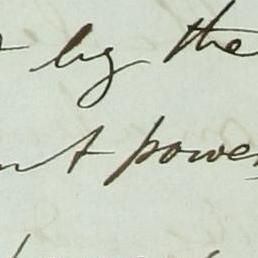 by the
nt power